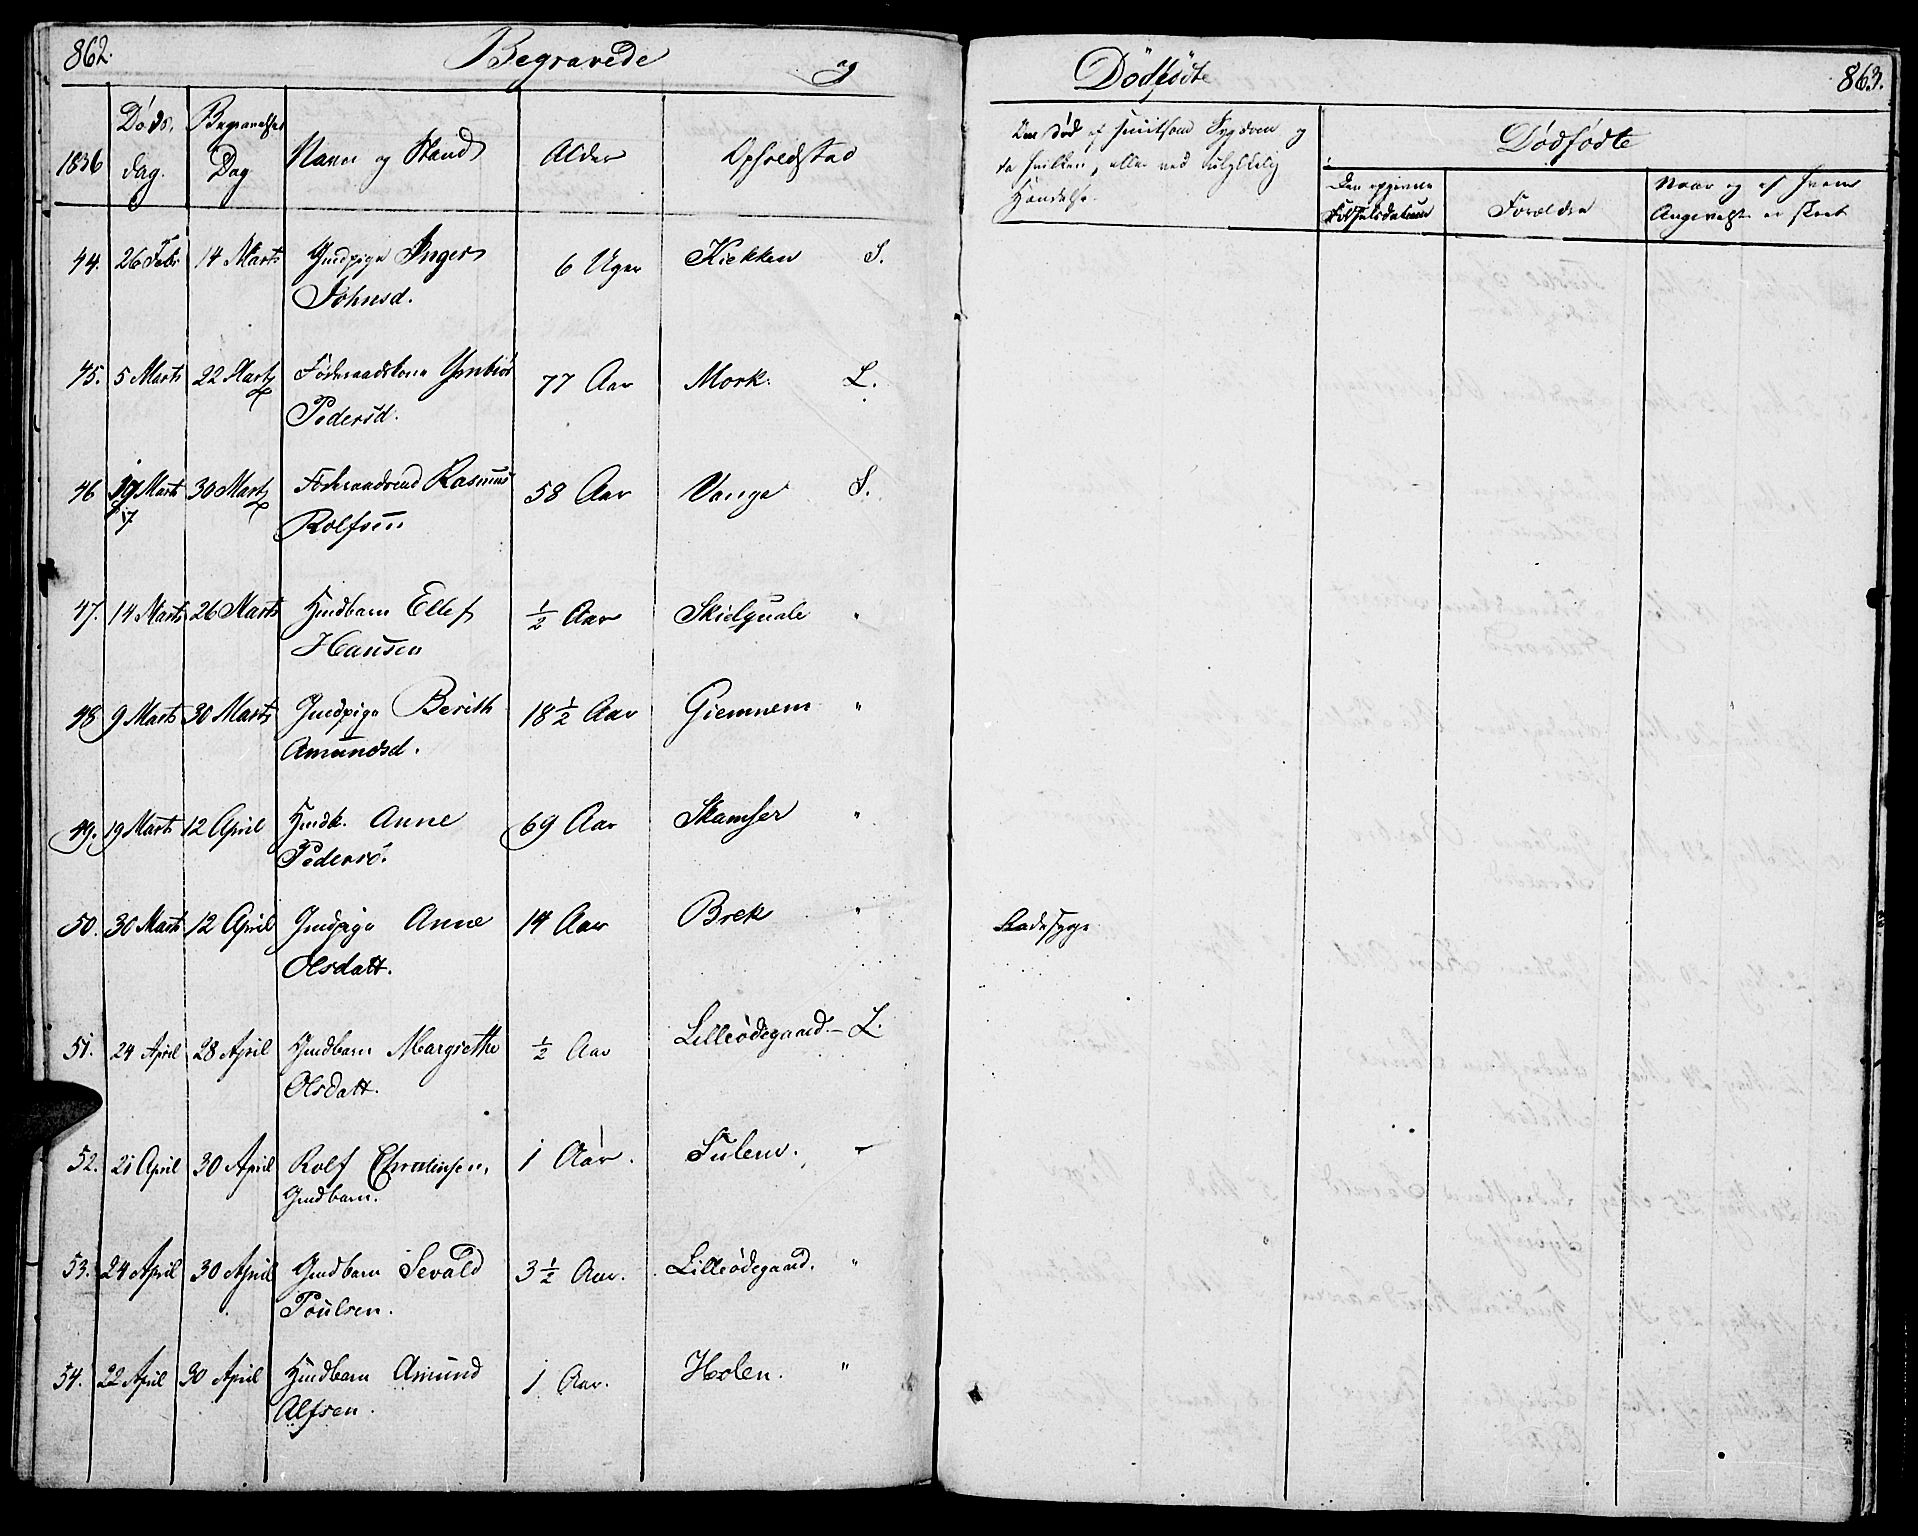 862.
Begravede
og
1836
Døds-
dag.
Begravelses
Dag
Navn og Stand
Alder
Opholdsted
44. 26 Feb. 14 Marts Indpige Inger 6 Uger Kiekken S.
Johnsd.
45. 5 Marts 22 Marts Føderaadskone 77 Aar Mork. L.
Pedersd.
46 Marts 30 Marts Føderaadsmd Rasmus 58 Aar Vange S.
17
Rolfsen
47. 14 Marts 26 Marts Indbarn Ellef ½ Aar Skielquale "
Hansen
48 9 Marts 30 Marts Indpige Berith 18 ½ Aar Giemnem "
Amundsd.
49. 19 Marts 12 April Indk. Anne 69 Aar Skamser "
Pedersd.
50. 30 Marts 12 April Indpige Anne 14 Aar Brek "
Olsdatt.
51. 24 April 28 April Indbarn Margrethe ½ Aar Lilleødegaard.– L.
Olsdatt.
52. 21 April 30 April Rolf 1 Aar. –
Indbarn.
53. 24 April 30 April Indbarn Sevald 3 ½ Aar. Lilleødegaard. "
Poulsen.
54. 22 April 30 April Indbarn Amund 1 Aar. Holen. "
Alfsen.
Dödfödte
863.
Om død af smitsom Sygdom og
da hvilken, eller ved ulykkelig
Hændelse.
Dødfødte
Den opgivne
Fødselsdatum
Forældre
Naar og af hvem
Angivelse er skeet
Radesyge